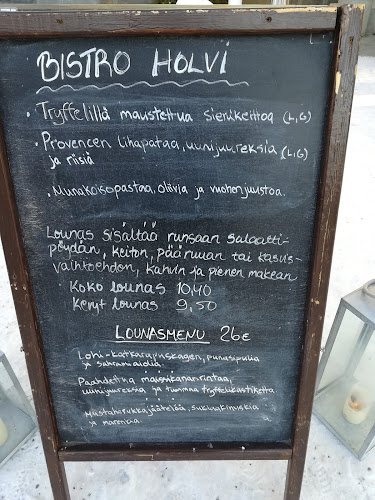 BISTRO HOLVI
• Tryffelillä maustettua sienikeittoa (L,G)
• Provencen lihapataa, uunijuureksia (L,G)
ja riisiä
• Munakoisopastaa, oliivia ja vuohenjuustoa.
Lounas sisältää runsaan salaatti-
pöydän, keiton, pääruuan tai kasvis-
vaihtoehdon, kahvin ja pienen makean
Koko lounas 10,40
Kevyt lounas 9,50
LOUNASMENU 26€
Lohi-katkarapuskagen, punasipulia
ja sahramiaiolia.
Paahdettua maissikananrintaa,
uunijuureksia ja tummaa tryffelikastiketta
Mustaherukkajäätelöä, suklaakimuskia
ja marenkia